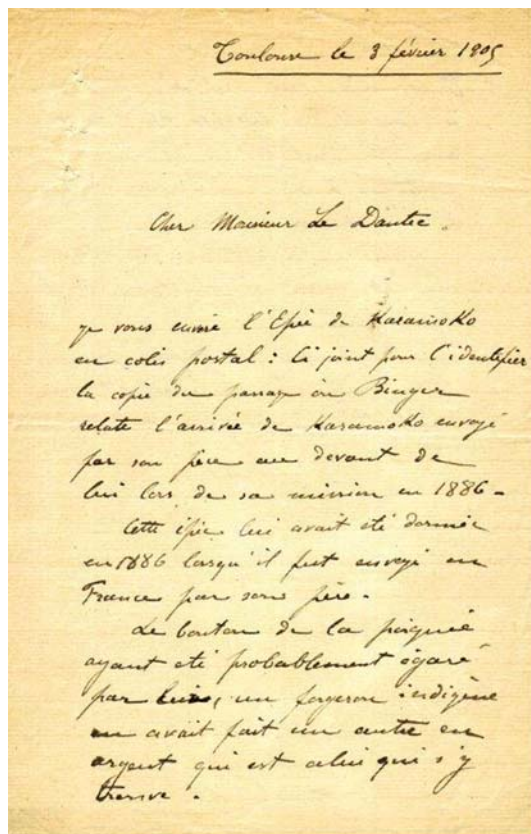 Toulouse le 3 février 1905
Cher Monsieur Le Dantec.
je vous envoie l'Epée de Karamoko
en colis postal : ci joint pour l'identifier
la copie du passage où Binger
relate l'arrivée de Karamoko envoyé
par son père au devant de
lui lors de sa mission en 1886 -
Cette épée lui avait été donnée
en 1886 lorsqu'il fut envoyé en
France par son père.
Le bouton de la poignée
ayant été probablement égaré
par lui, un forgeron indigène
en avait fait un autre en
argent qui est celui qui s'y
trouve.